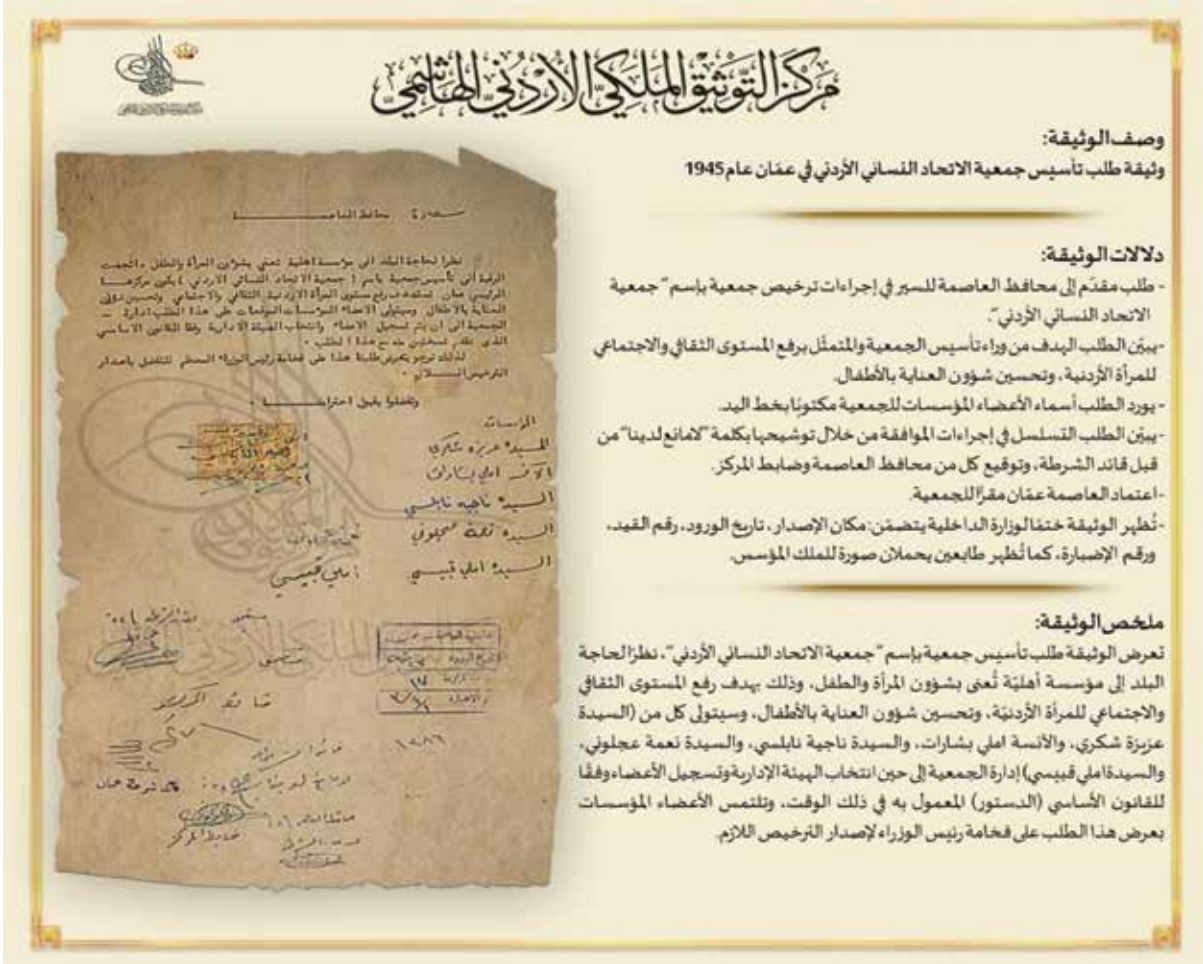 مركز التوثيق الملكي الأردني الهاشمي
وصف الوثيقة:
وثيقة طلب تأسيس جمعية الاتحاد النسائي الأردني في عمّان عام 1945
دلالات الوثيقة:
- طلب مقدّم إلى محافظ العاصمة للسير في إجراءات ترخيص جمعية بإسم "جمعية
الاتحاد النسائي الأردني".
-يبيّن الطلب الهدف من وراء تأسيس الجمعية والمتمثّل برفع المستوى الثقافي والاجتماعي
للمرأة الأردنية، وتحسين شؤون العناية بالأطفال.
- يورد الطلب أسماء الأعضاء المؤسسات للجمعية مكتوبًا بخط اليد.
- يبيّن الطلب التسلسل في إجراءات الموافقة من خلال توشيحها بكلمة "لامانع لدينا" من
قبل قائد الشرطة، وتوقيع كل من محافظ العاصمة وضابط المركز.
-اعتماد العاصمة عمّان مقرًا للجمعية.
-تُظهر الوثيقة ختمًا لوزارة الداخلية يتضمّن: مكان الإصدار، تاريخ الورود، رقم القيد،
ورقم الإضبارة، كما تُظهر طابعين يحملان صورة للملك المؤسس.
ملخص الوثيقة:
تعرض الوثيقة طلب تأسيس جمعية بإسم "جمعية الاتحاد النسائي الأردني"، نظرًا لحاجة
البلد إلى مؤسسة أهليّة تُعنى بشؤون المرأة والطفل، وذلك بهدف رفع المستوى الثقافي
والاجتماعي للمرأة الأردنيّة، وتحسين شؤون العناية بالأطفال، وسيتولى كل من (السيدة
عزيزة شكري، والآنسة املي بشارات، والسيدة ناجية نابلسي، والسيدة نعمة عجلوني،
والسيدة املي قبيسي) إدارة الجمعية إلى حين انتخاب الهيئة الإدارية وتسجيل الأعضاء وفقًا
للقانون الأساسي (الدستور) المعمول به في ذلك الوقت، وتلتمس الأعضاء المؤسسات
بعرض هذا الطلب على فخامة رئيس الوزراء لإصدار الترخيص اللازم.
سعادة محافظ العاصمة
نظرا لحاجة البلد الى مؤسسة اهلية تعنى بشؤون المرأة والطفل ، اتجهت
الرغبة الى تأسيس جمعية باسم ( جمعية الاتحاد النسائي الاردني ) يكون مركزها
الرئيسي عمان تستهدف رفع مستوى المرأة الاردنية الثقافي والاجتماعي وتحسين شؤون
العناية بالاطفال وسيتولى الاعضاء المؤسسات الموقعات على هذا الطلب ادارة
الجمعية الى ان يتم تسجيل الاعضاء وانتخاب الهيئة الادارية وفقا للقانون الاساسي
الذي نقدم نسختين منه مع هذا الطلب .
لذلك نرجو بعرض طلبنا هذا على فخامة رئيس الوزراء المعظم للتفضل باصدار
الترخيص اللازم .
وتفضلوا بقبول احترامنا .
المؤسسات
السيدة عزيزة شكري
الآنسة املي بشارات
السيدة ناجيه نابلسي
السيده نعمة عجلوني
السيدة املي قبيسي
املي قبيسي
ضابط المركز